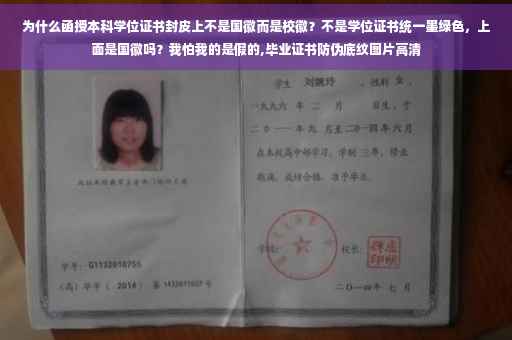 为什么函授本科学位证书封皮上不是国徽而是校徽？不是学位证书统一墨绿色，上
面是国徽吗？我怕我的是假的,毕业证书防伪底纹图片高清
学生 刘婉玲 性别 女，
一九九六 年 二 月 日生，于
二〇一一年九 月至二〇一四年六月
在本校高中部学习，学制 三年，修业
期满，成绩合格，准予毕业。
学号：G1132010755
学校： 校长：
（高）毕字（ 2014 ）第 1432011027 号
二〇一四年 七 月